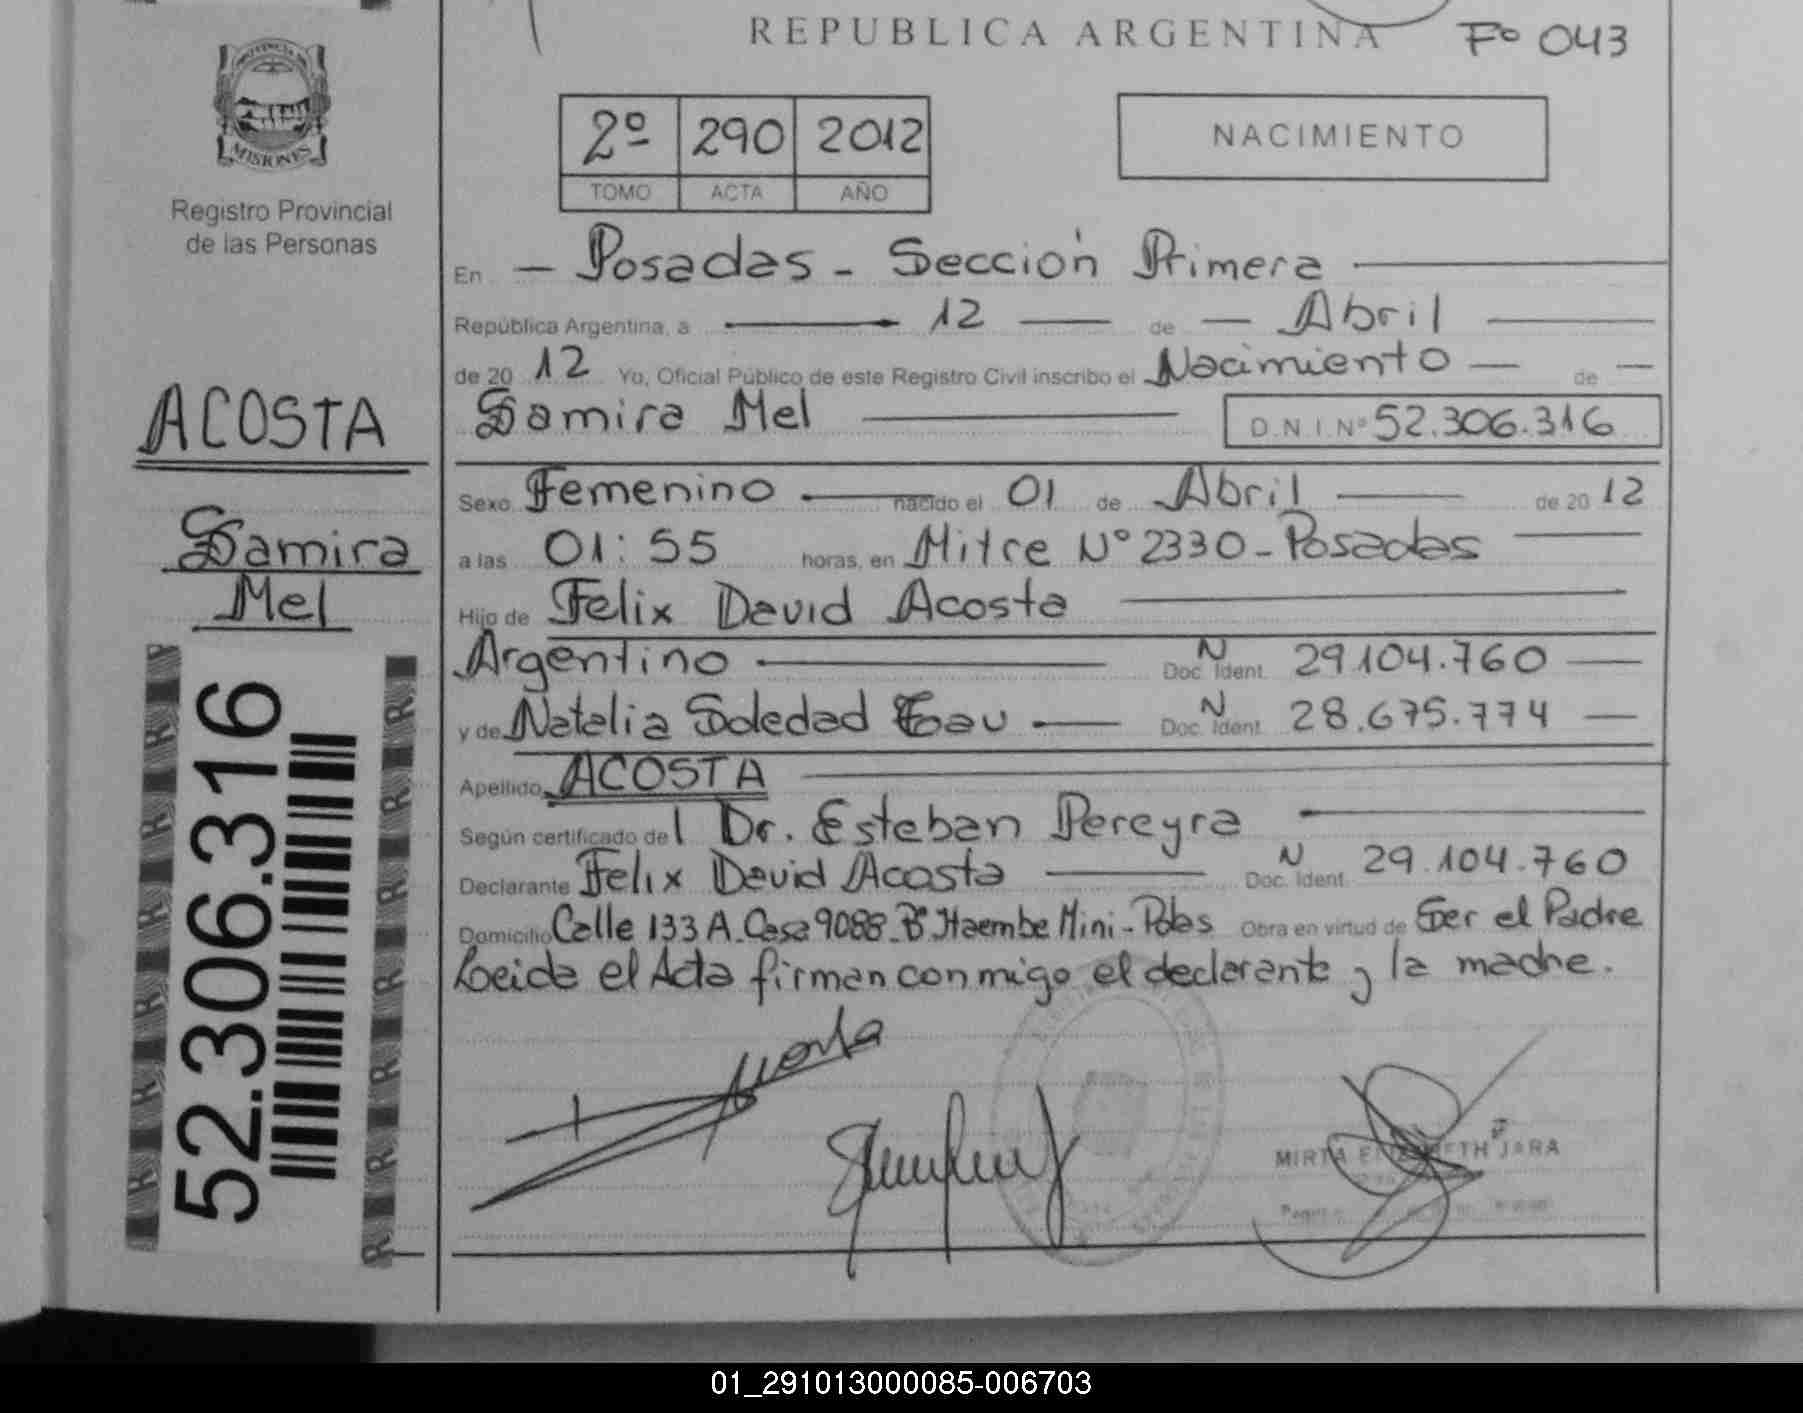 REPUBLICA ARGENTINA
Fº 043
PROVINCIA DE
MISIONES
Registro Provincial
de las Personas
2º 290 2012
TOMO ACTA AÑO
NACIMIENTO
En — Posadas - Sección Primera
República Argentina, a 12 — de — Abril
de 20 12 Yo, Oficial Público de este Registro Civil inscribo el Nacimiento — de —
Samira Mel D.N.I. Nº 52.306.316
ACOSTA
Samira
Mel
52.306.316
Sexo Femenino nacido el 01 de Abril de 20 12
a las 01:55 horas, en Mitre Nº 2330 - Posadas
Hijo de Felix David Acosta
Argentino N Doc. Ident. 29.104.760
y de Natalia Soledad N Doc. Ident. 28.675.774
Apellido ACOSTA
Según certificado del Dr. Esteban Pereyra
Declarante Felix David Acosta N Doc. Ident. 29.104.760
Domicilio Calle 133 A. Casa 9088 Bº Itaembe Mini - Obra en virtud de Ser el Padre
Leida el Acta firman conmigo el declarante y la madre.
MIRTA ELIZABETH JARA
01_291013000085-006703